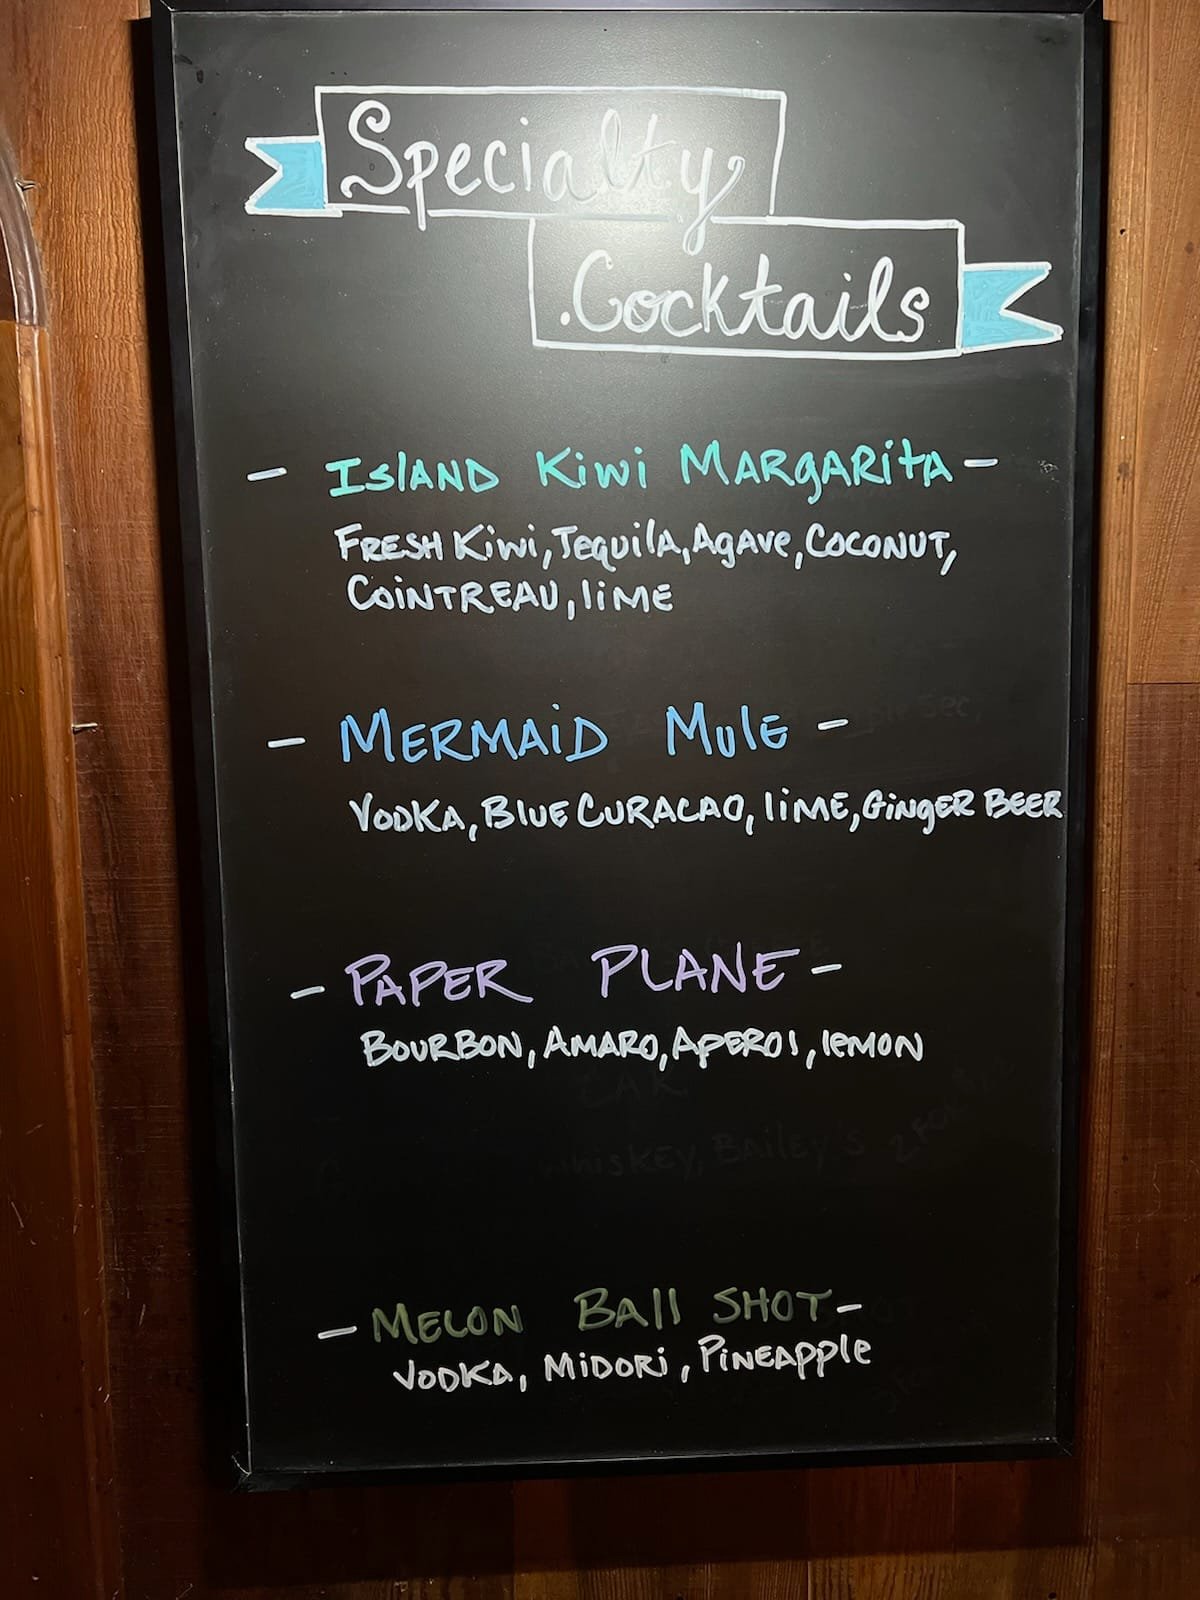 Specialty
Cocktails
- Island Kiwi Margarita -
Fresh Kiwi, Tequila, Agave, Coconut,
Cointreau, lime
- Mermaid Mule -
Vodka, Blue Curacao, lime, Ginger Beer
- Paper Plane -
Bourbon, Amaro, Aperol, lemon
Whiskey, Bailey's 2 for
- Melon Ball Shot -
Vodka, Midori, Pineapple